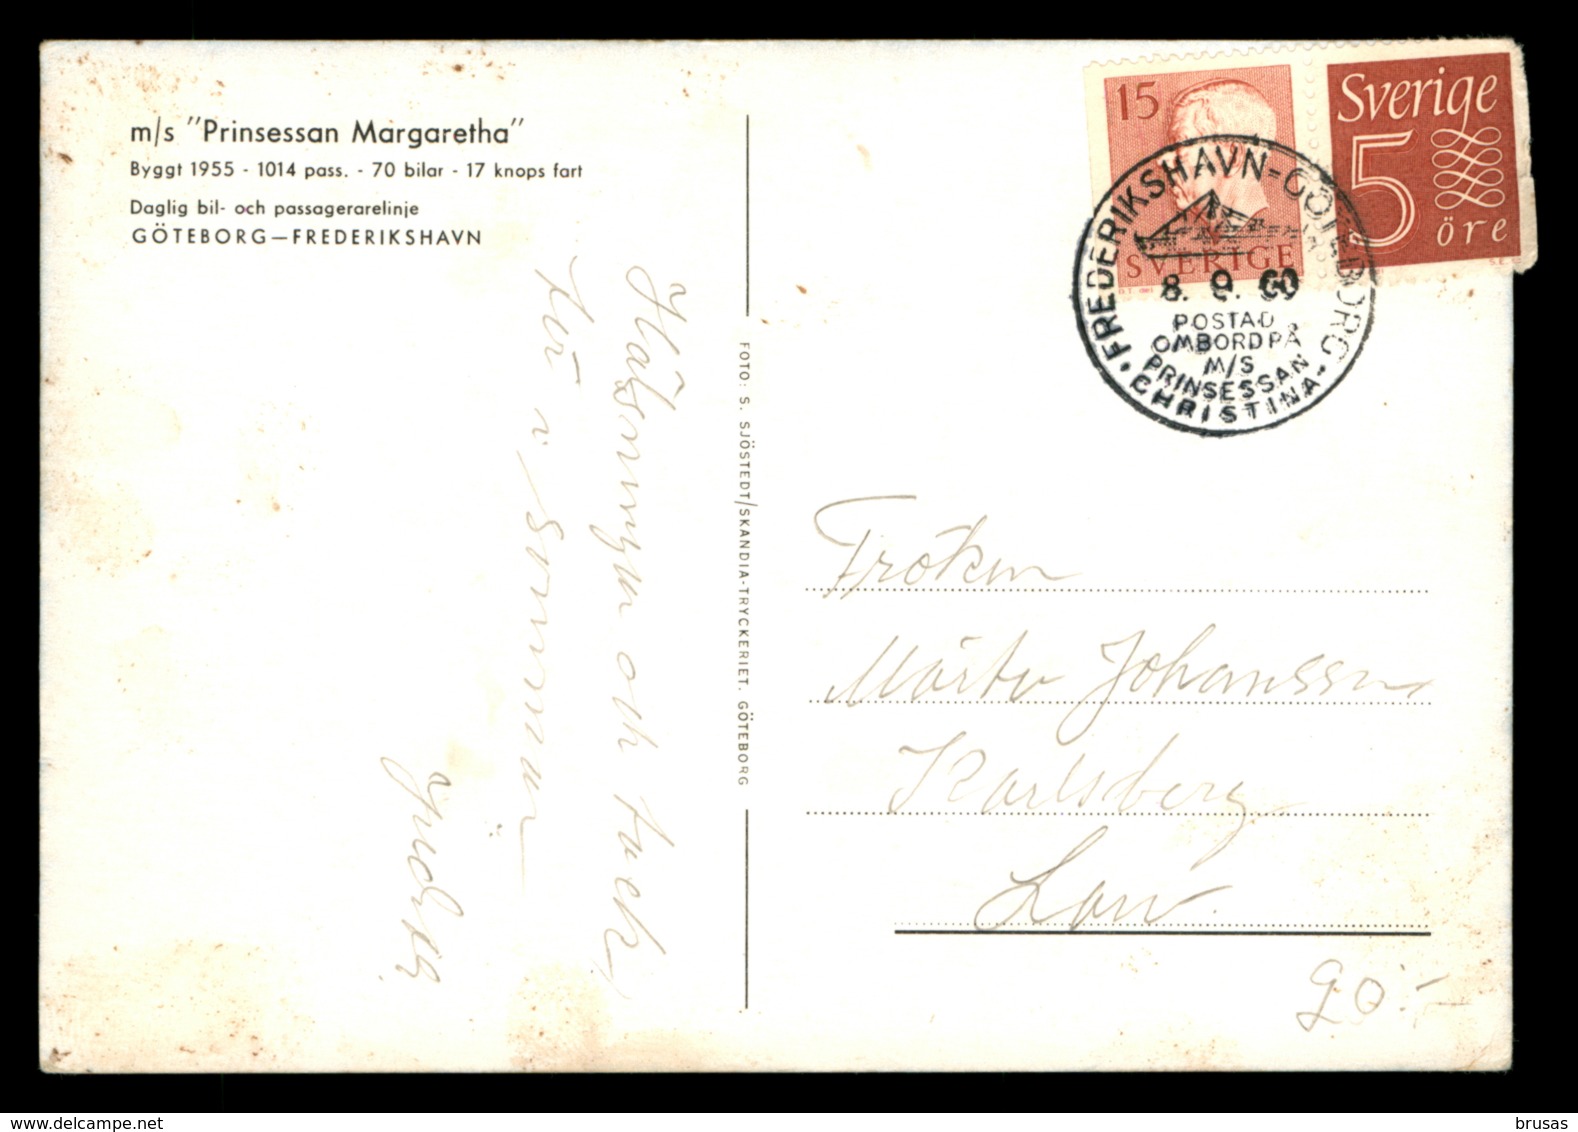 m/s "Prinsessan Margaretha"
Byggt 1955 - 1014 pass. - 70 bilar - 17 knops fart
Daglig bil- och passagerarelinje
GÖTEBORG—FREDERIKSHAVN
Hälsningar och tack
för i sommar
FOTO: S. SJÖSTEDT/SKANDIA-TRYCKERIET. GÖTEBORG
15
SVERIGE
Sverige
5
öre
FREDERIKSHAVN-GÖTEBORG
8. 9. 60
POSTAD
OMBORD PÅ
M/S
PRINSESSAN
CHRISTINA
Fröken
Märta Johansson
Karlsberg
90:-
delcampe.net
brusas